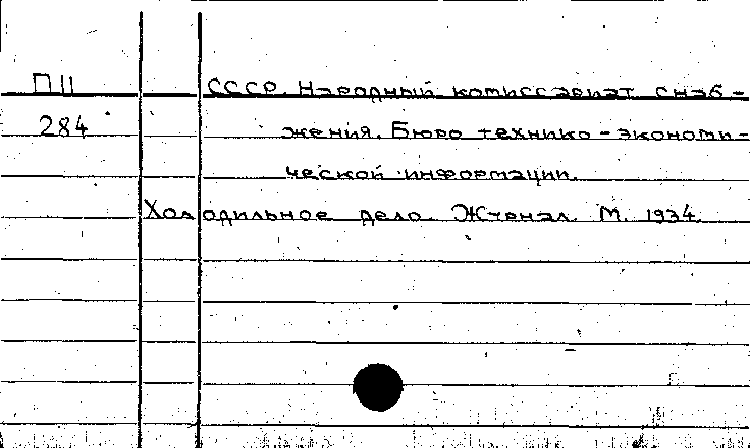 П11 СССР. Народный комиссариат снаб-
284 жения. Бюро технико-экономи-
ческой информации.
Холодильное дело. Журнал. М. 1934.